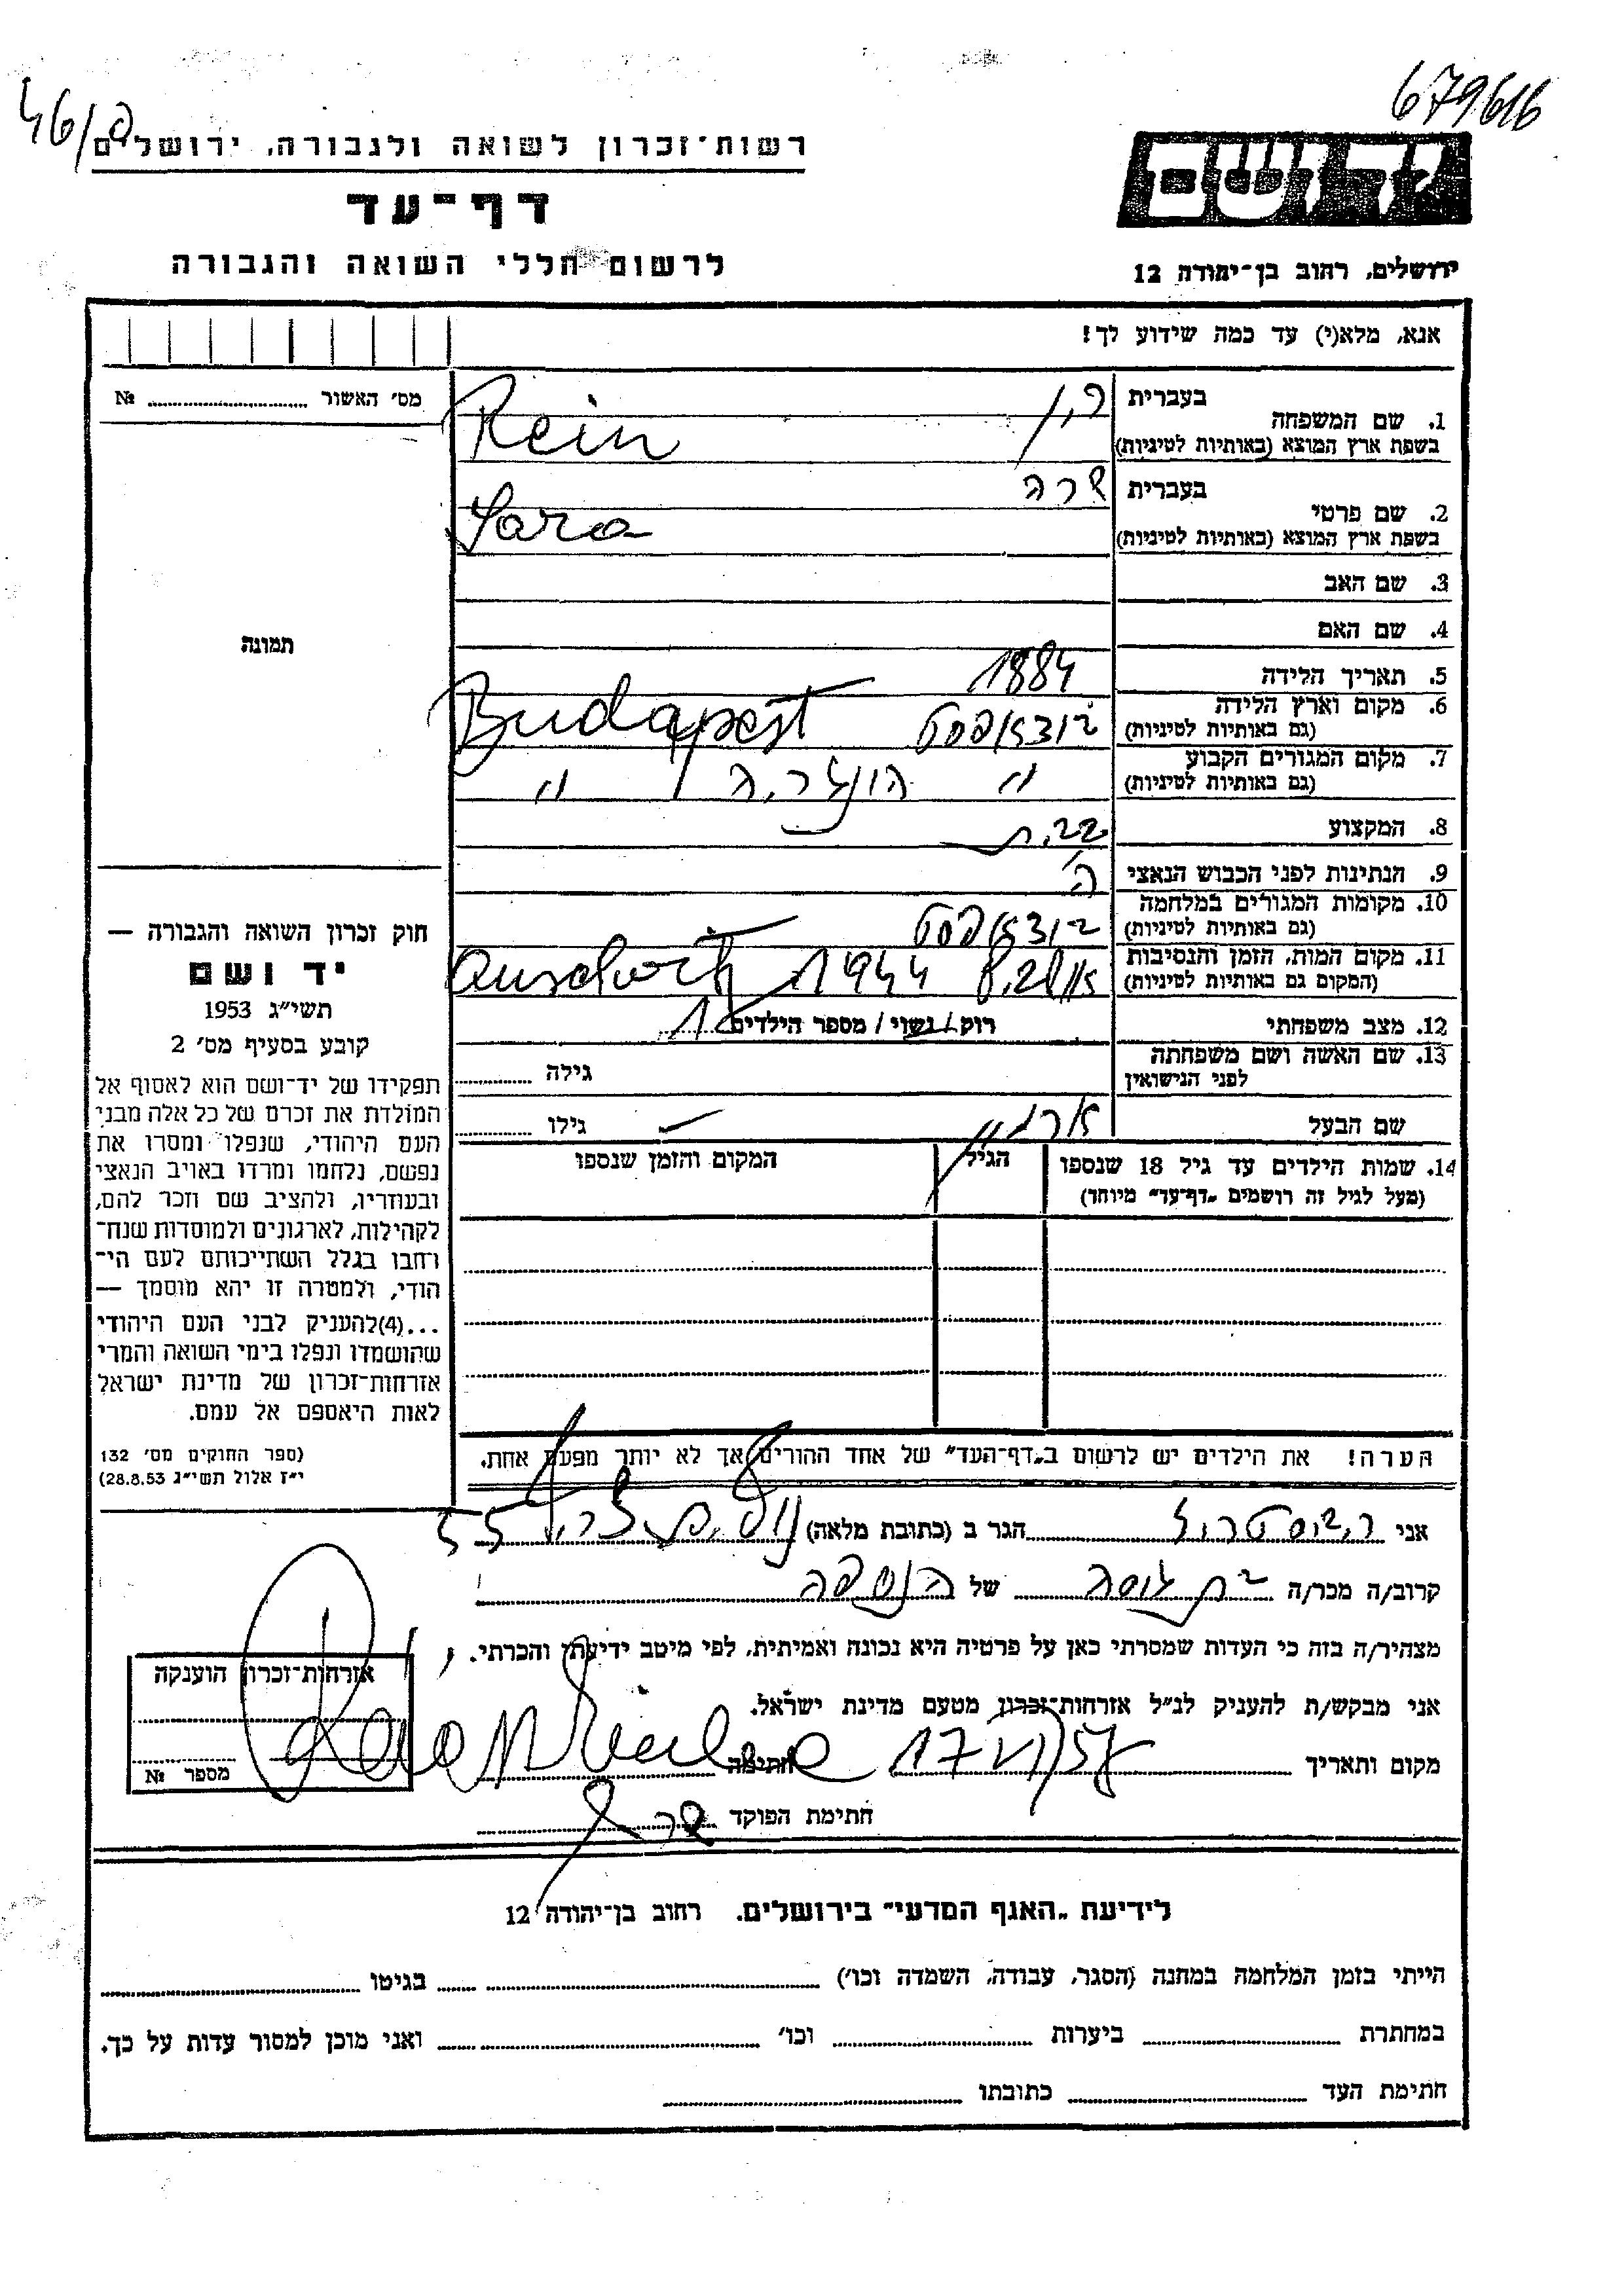 679616
46/פ
רשות־זכרון לשואה ולגבורה, ירושלים
דף־עד
לרשום חללי השואה והגבורה
יד ושם
ירושלים, רחוב בן־יהודה 12
אנא, מלא(י) עד כמה שידוע לך!
מס׳ האשור № 
1. שם המשפחה בעברית
בשפת ארץ המוצא (באותיות לטיניות)
Rein
2. שם פרטי בעברית שרה
בשפת ארץ המוצא (באותיות לטיניות)
Sara
3. שם האב
4. שם האם
תמונה
5. תאריך הלידה 1884
6. מקום וארץ הלידה
(גם באותיות לטיניות) בודאפסט Budapest
7. מקום המגורים הקבוע
(גם באותיות לטיניות) " הונגריה "
8. המקצוע
9. הנתינות לפני הכבוש הנאצי
10. מקומות המגורים במלחמה
(גם באותיות לטיניות) בודאפסט
11. מקום המות, הזמן והנסיבות
(המקום גם באותיות לטיניות) 1944
12. מצב משפחתי רוק/נשוי/מספר הילדים
13. שם האשה ושם משפחתה
לפני הנישואין
גילה
שם הבעל
גילו
14. שמות הילדים עד גיל 18 שנספו
(מעל לגיל זה רושמים „דף־עד״ מיוחד)
הגיל
המקום והזמן שנספו
חוק זכרון השואה והגבורה —
יד ושם
תשי״ג 1953
קובע בסעיף מס׳ 2
תפקידו של יד־ושם הוא לאסוף אל
המולדת את זכרם של כל אלה מבני
העם היהודי, שנפלו ומסרו את
נפשם, נלחמו ומרדו באויב הנאצי
ובעוזריו, ולהציב שם וזכר להם,
לקהילות, לארגונים ולמוסדות שנח־
רחבו בגלל השתייכותם לעם הי־
הודי, ולמטרה זו יהא מוסמך —
...(4)להעניק לבני העם היהודי
שהושמדו ונפלו בימי השואה והמרי
אזרחות־זכרון של מדינת ישראל
לאות היאספם אל עמם.
(ספר החוקים מס׳ 132
י״ז אלול תשי״ג 28.8.53)
הערה! את הילדים יש לרשום ב„דף־העד״ של אחד ההורים אך לא יותר מפעם אחת.
אני הגר ב (כתובת מלאה) 55
קרוב/ה מכר/ה של הנספה
מצהיר/ה בזה כי העדות שמסרתי כאן על פרטיה היא נכונה ואמיתית, לפי מיטב ידיעתי והכרתי.
אני מבקש/ת להעניק לנ״ל אזרחות־זכרון מטעם מדינת ישראל.
מקום ותאריך חתימה
חתימת הפוקד
אזרחות־זכרון הוענקה
מספר №
לידיעת „האגף המדעי״ בירושלים. רחוב בן־יהודה 12
הייתי בזמן המלחמה במחנה (הסגר, עבודה, השמדה וכו׳) בגיטו
במחתרת ביערות וכו׳ ואני מוכן למסור עדות על כך.
חתימת העד כתובתו